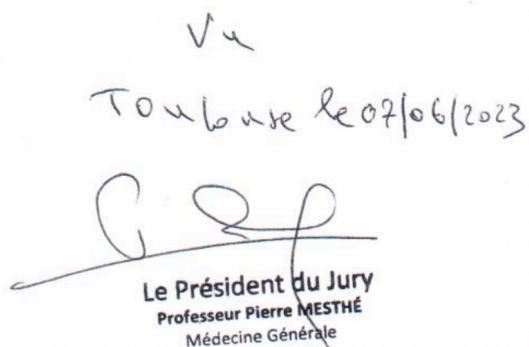 Vu
Toulouse le 07/06/2023
Le Président du Jury
Professeur Pierre MESTHÉ
Médecine Générale